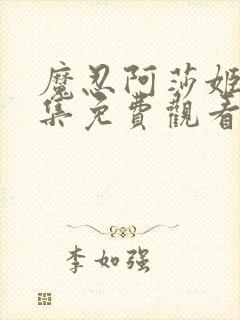 魔忍阿莎姬
集免費觀看
李如强